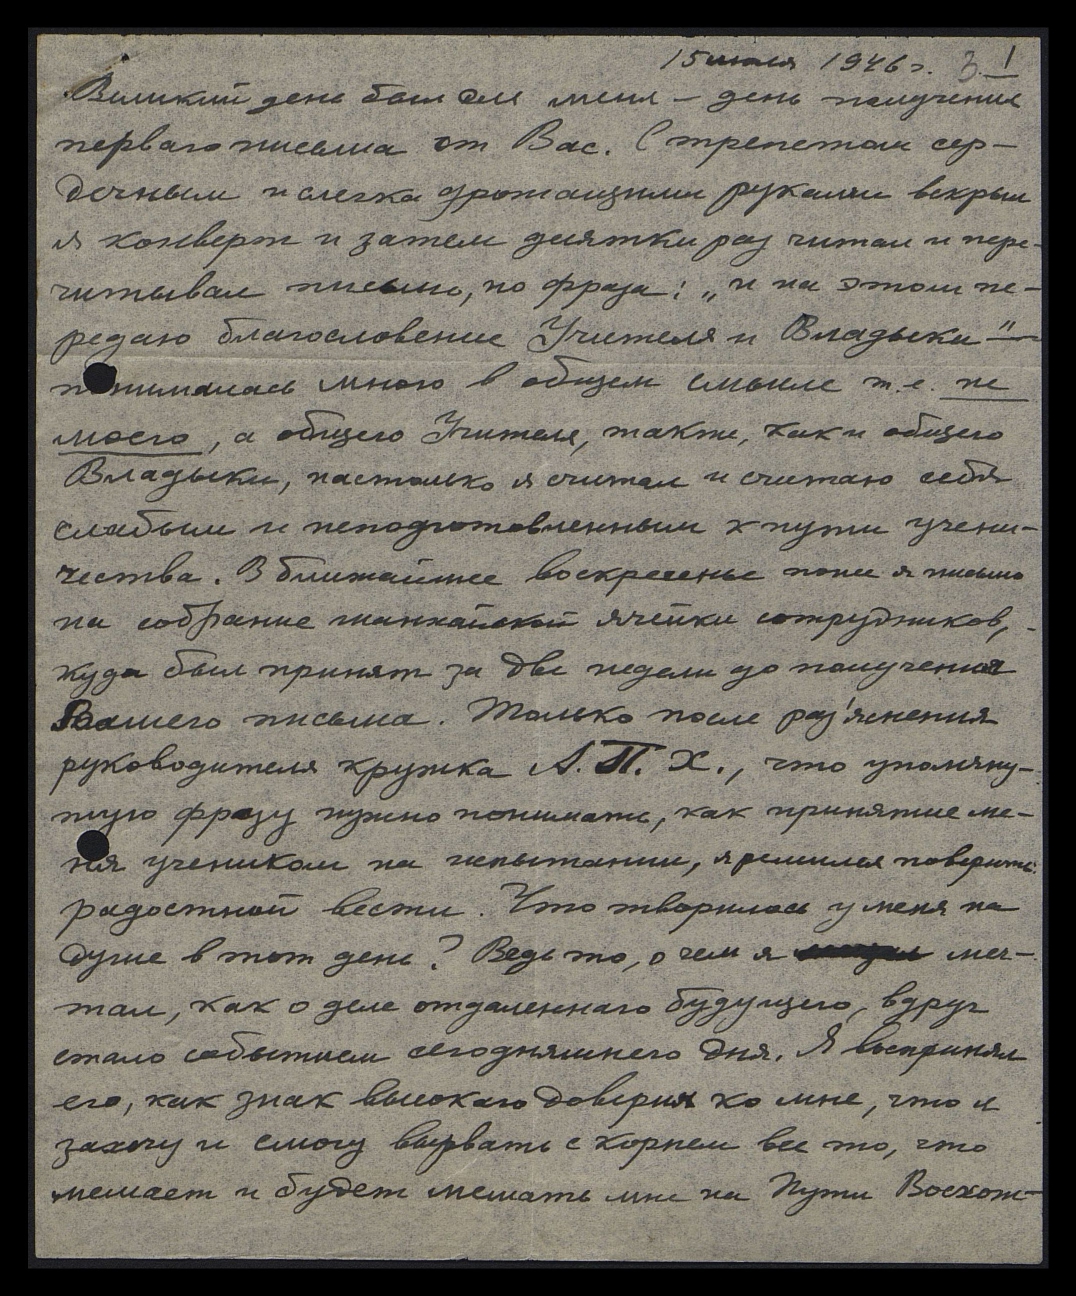 15 июля 1946 г. 3 1
Великий день был для меня — день получения
перваго письма от Вас. С трепетом сер-
дечным и слегка дрожащими руками вскрыл
я конверт и затем десятки раз читал и пере-
читывал письмо, но фраза: „и на этом пе-
редаю благословение Учителя и Владыки" —
понималась мною в общем смысле т.е. не
моего, а общего Учителя, также, как и общего
Владыки, настолько я считал и считаю себя
слабым и неподготовленным к пути учени-
чества. В ближайшее воскресенье понес я письмо
на собрание шанхайской ячейки сотрудников,
куда был принят за две недели до получения
Вашего письма. Только после раз'яснения
руководителя кружка А. П. Х., что упомяну-
тую фразу нужно понимать, как принятие ме-
ня учеником на испытании, я решился поверить
радостной вести. Что творилось у меня на
душе в тот день? Ведь то, о чем я меч-
тал, как о деле отдаленнаго будущего, вдруг
стало событием сегодняшнего дня. Я воспринял
его, как знак высокаго доверия ко мне, что я
захочу и смогу вырвать с корнем все то, что
мешает и будет мешать мне на Пути Восхож-